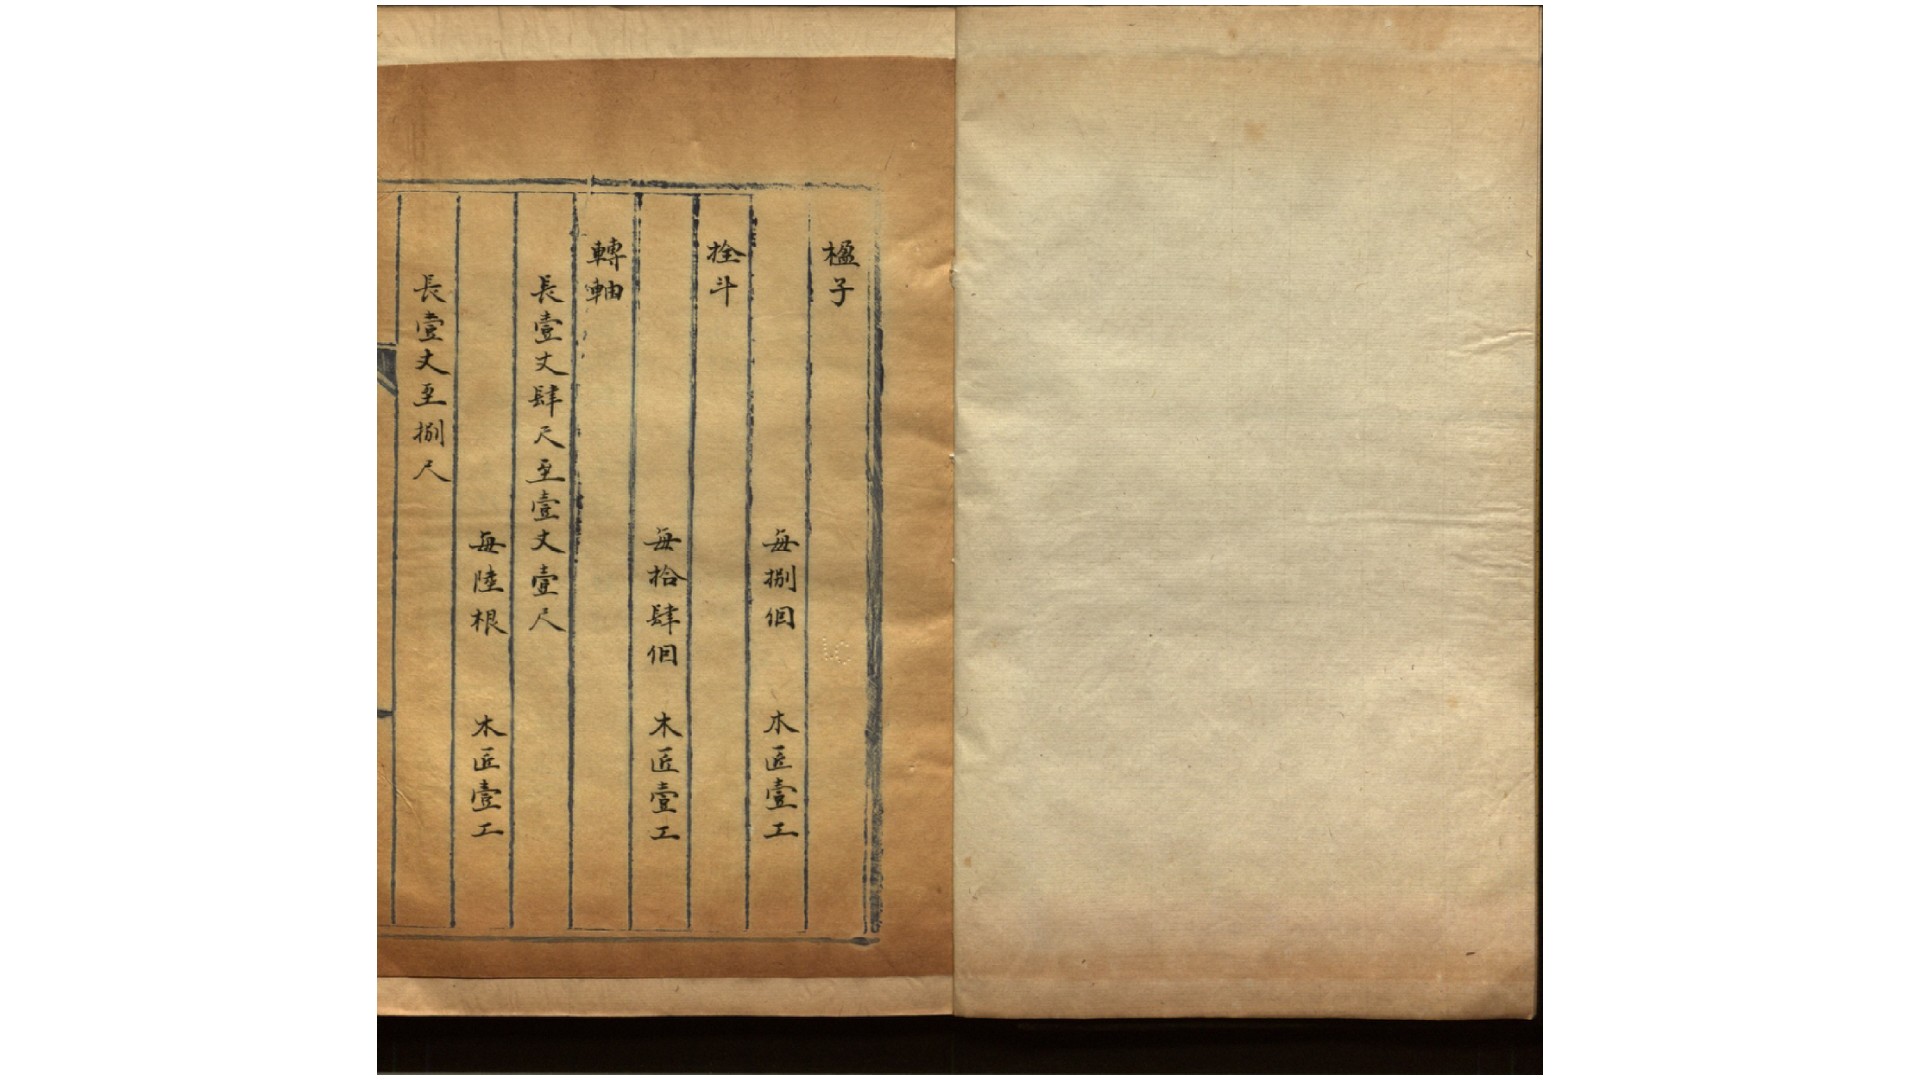 楹子
每捌個 木匠壹工
拴斗
每拾肆個 木匠壹工
轉軸
長壹丈肆尺至壹丈壹尺
每陸根 木匠壹工
長壹丈至捌尺